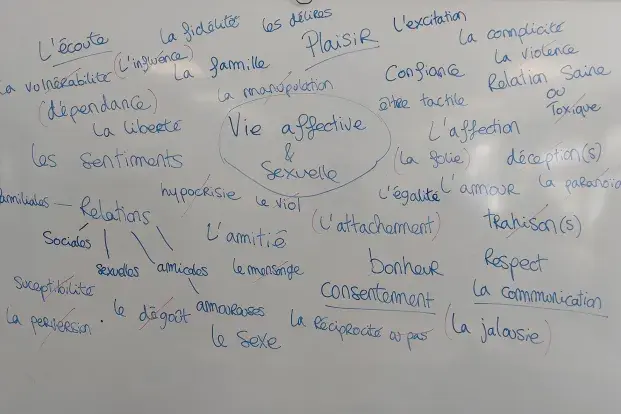 La fidélité
Les délires
L'excitation
L'écoute
(L'influence)
Plaisir
La complicité
La violence
La famille
La vulnérabilité
La manipulation
Confiance
Relation Saine
ou
Toxique
(dépendance)
être tactile
La liberté
Vie affective
&
Sexuelle
L'affection
Les sentiments
(La folie)
déception(s)
hypocrisie
Le viol
L'égalité
L'amour
La paranoïa
familiales — Relations
Sociales
sexuelles
amicales
amoureuses
L'amitié
(L'attachement)
trahison(s)
le mensonge
bonheur
Respect
Suceptibilité
consentement
La communication
La perversion
le dégoût
le Sexe
La réciprocité ou pas
(La jalousie)